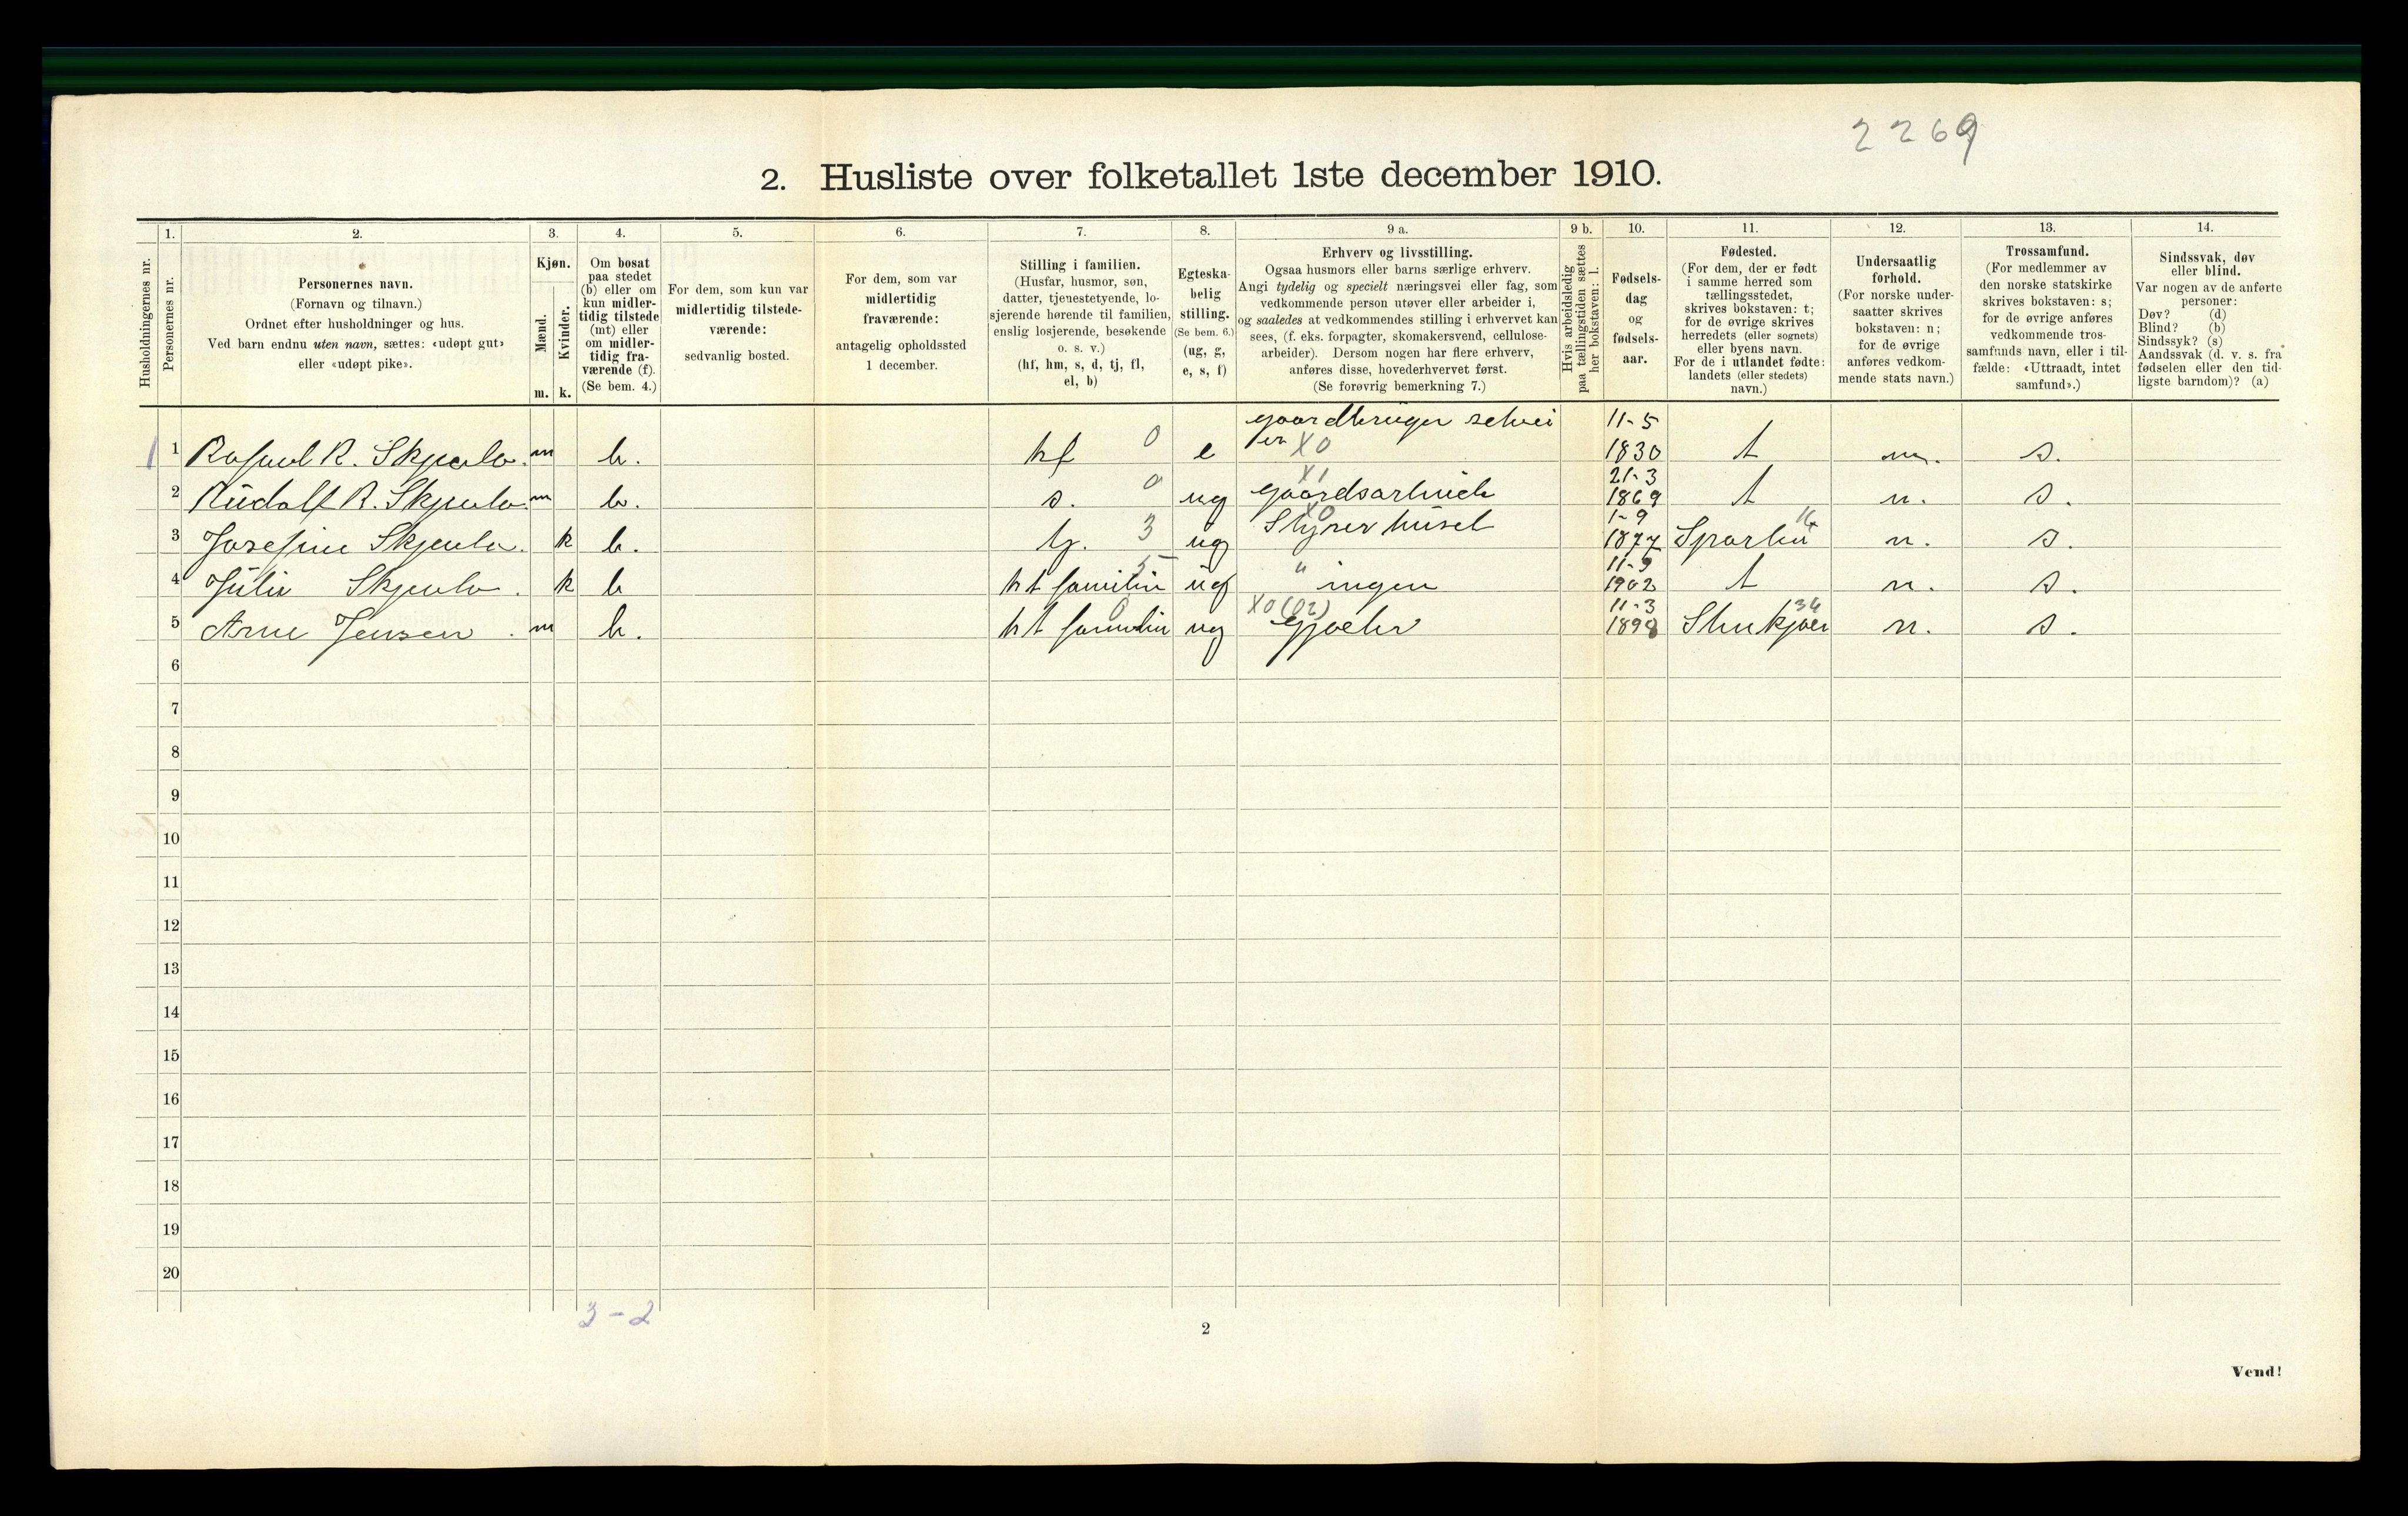 2269
2. Husliste over folketallet 1ste december 1910.
Husholdningernes nr.
1.
Personernes nr.
2.
Personernes navn.
(Fornavn og tilnavn.)
Ordnet efter husholdninger og hus.
Ved barn endnu uten navn, sættes: «udøpt gut»
eller «udøpt pike».
3.
Kjøn.
Mænd.
m.
Kvinder.
k.
4.
Om bosat
paa stedet
(b) eller om
kun midler-
tidig tilstede
(mt) eller
om midler-
tidig fra-
værende (f).
(Se bem. 4.)
5.
For dem, som kun var
midlertidig tilstede-
værende:
sedvanlig bosted.
6.
For dem, som var
midlertidig
fraværende:
antagelig opholdssted
1 december.
7.
Stilling i familien.
(Husfar, husmor, søn,
datter, tjenestetyende, lo-
sjerende hørende til familien,
enslig losjerende, besøkende
o. s. v.)
(hf, hm, s, d, tj, fl,
el, b)
8.
Egteska-
belig
stilling.
(Se bem. 6.)
(ug, g,
e, s, f)
9 a.
Erhverv og livsstilling.
Ogsaa husmors eller barns særlige erhverv.
Angi tydelig og specielt næringsvei eller fag, som
vedkommende person utøver eller arbeider i,
og saaledes at vedkommendes stilling i erhvervet kan
sees, (f. eks. forpagter, skomakersvend, cellulose-
arbeider). Dersom nogen har flere erhverv,
anføres disse, hovederhvervet først.
(Se forøvrig bemerkning 7.)
9 b.
Hvis arbeidsledig
paa tællingstiden sættes
her bokstaven: l.
10.
Fødsels-
dag
og
fødsels-
aar.
11.
Fødested.
(For dem, der er født
i samme herred som
tællingsstedet,
skrives bokstaven: t;
for de øvrige skrives
herredets (eller sognets)
eller byens navn.
For de i utlandet fødte:
landets (eller stedets)
navn.)
12.
Undersaatlig
forhold.
(For norske under-
saatter skrives
bokstaven: n;
for de øvrige
anføres vedkom-
mende stats navn.)
13.
Trossamfund.
(For medlemmer av
den norske statskirke
skrives bokstaven: s;
for de øvrige anføres
vedkommende tros-
samfunds navn, eller i til-
fælde: «Uttraadt, intet
samfund».)
14.
Sindssvak, døv
eller blind.
Var nogen av de anførte
personer:
Døv? (d)
Blind? (b)
Sindssyk? (s)
Aandssvak (d. v. s. fra
fødselen eller den tid-
ligste barndom)? (a)
1 1 R. m b. hf 0 e gaardbruger selvei er X0 11-5 1830 t n. s.
2 Rudolf R. m b. s. 0 ug X1 21-3 1869 t n. s.
3 Josefine k b. tj. 3 ug X0 Styrer huset 1-9 1877 n. s.
4 k b 5 ug " ingen 1902 t n. s.
5 Arne Jensen. m b. 0 ug X0 (02) 11-3 1898 34 n. s.
6
7
8
9
10
11
12
13
14
15
16
17
18
19
20
3-2
2
Vend!